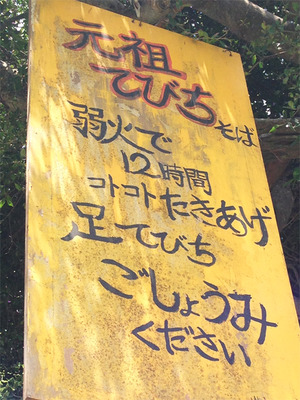 元祖
てびち そば
弱火で
12時間
コトコトたきあげ
足てびち
ごしょうみ
ください